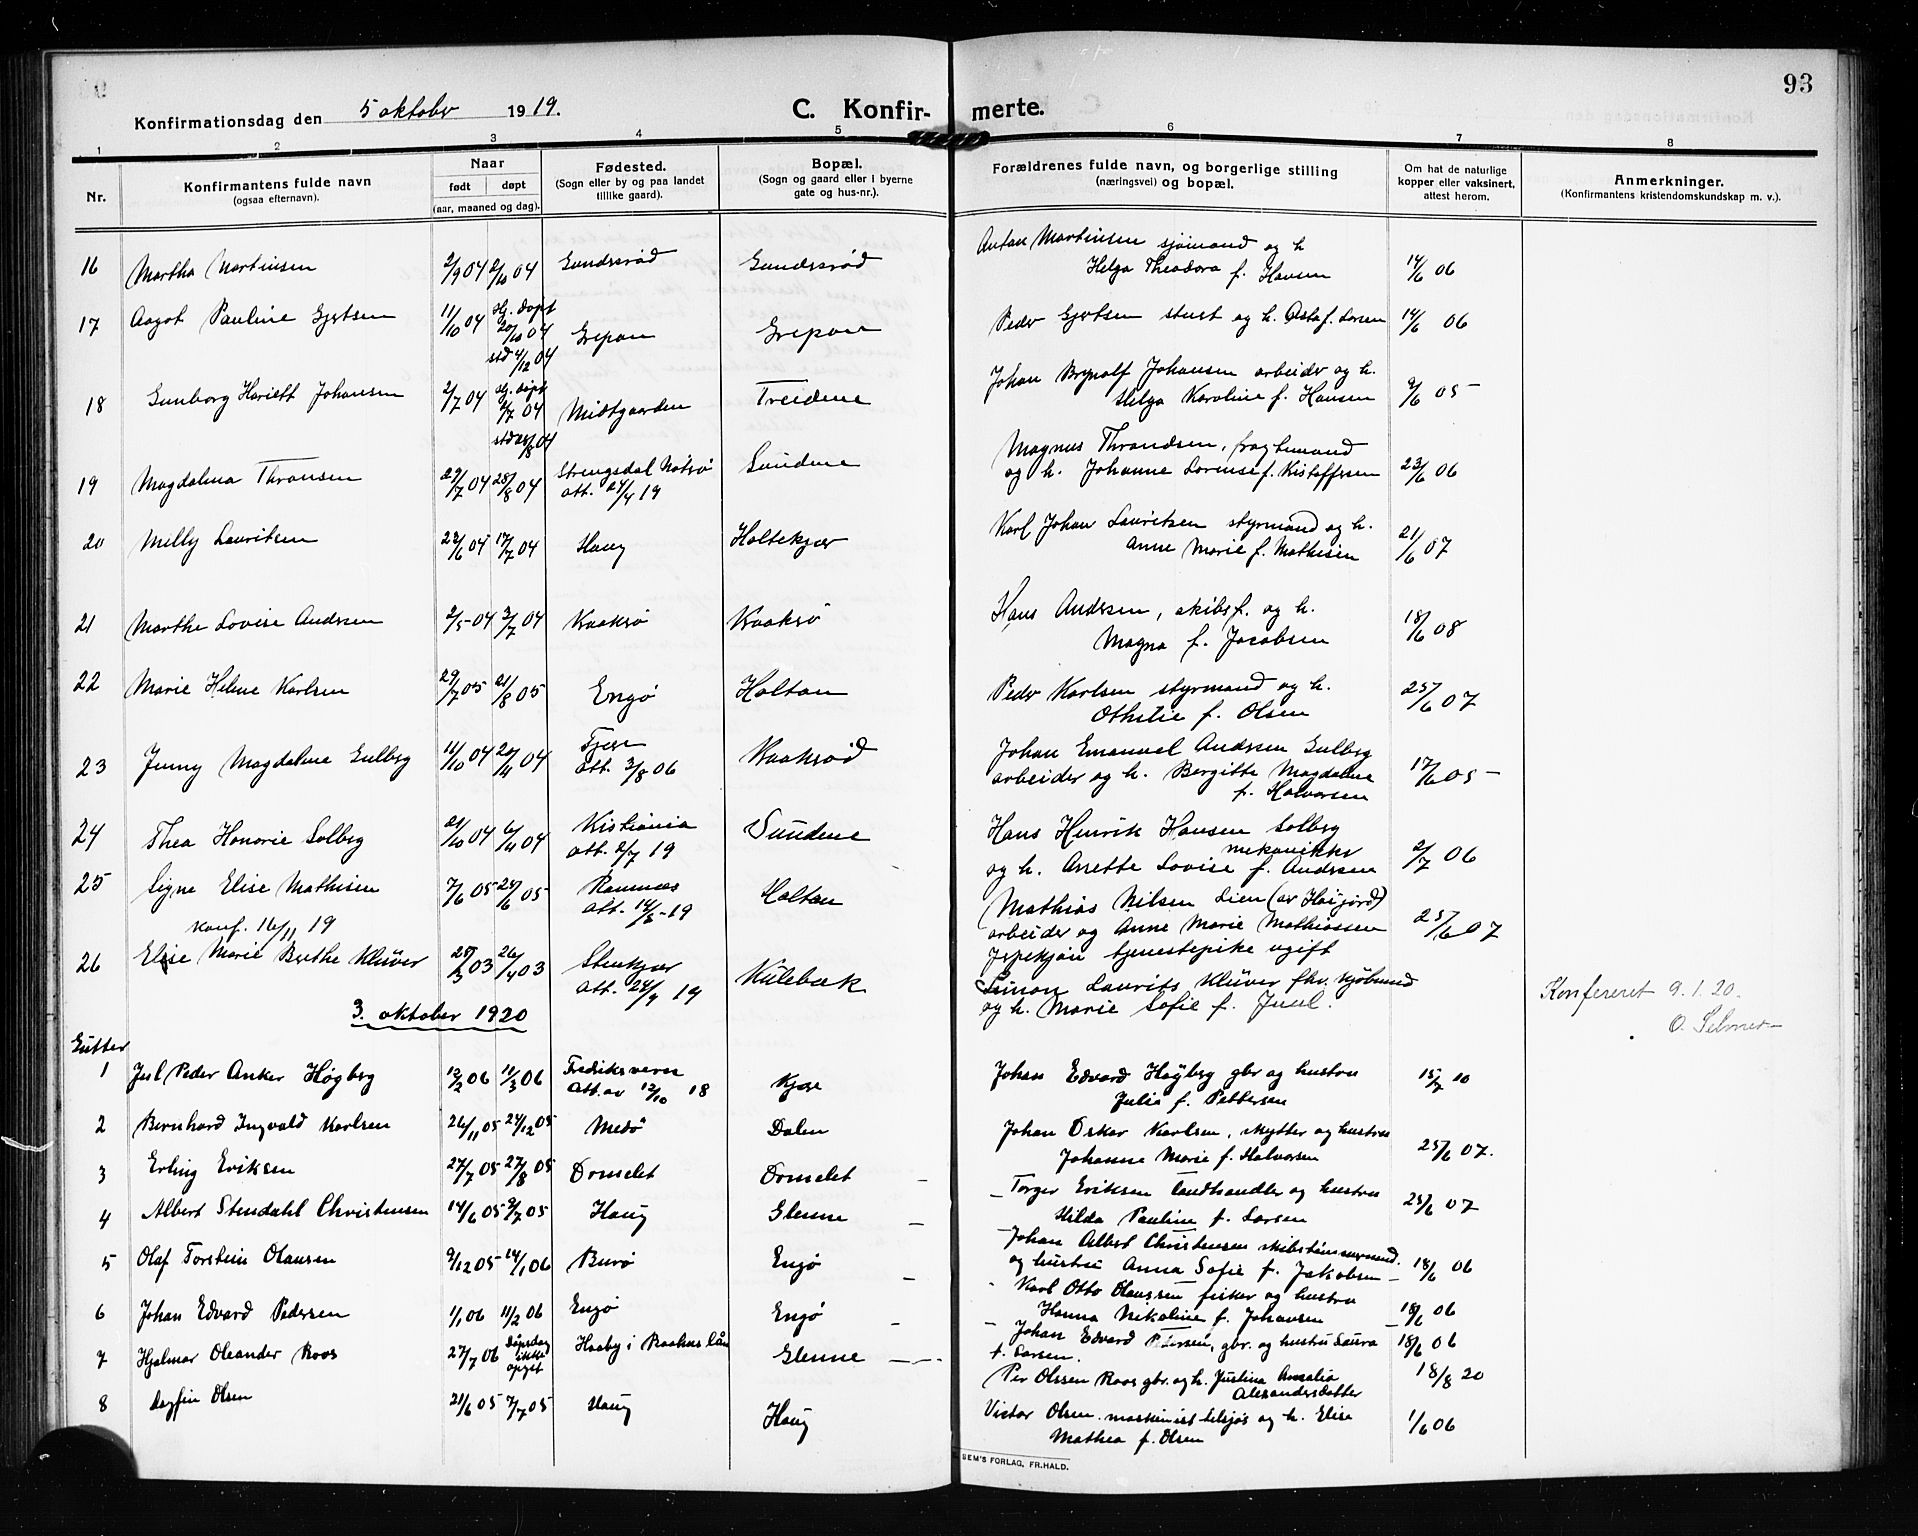 93
Konfirmationsdag den 5 oktober 1919.
C. Konfirmerte.
1 2 3 4 5 6 7 8
Nr.
Konfirmantens fulde navn
(ogsaa efternavn).
Naar
født døpt
(aar, maaned og dag).
Fødested.
(Sogn eller by og paa landet
tillike gaard).
Bopæl.
(Sogn og gaard eller i byerne
gate og hus-nr.).
Forældrenes fulde navn, og borgerlige stilling
(næringsvei) og bopæl.
Om hat de naturlige
kopper eller vaksinert,
attest herom.
Anmerkninger.
(Konfirmantens kristendomskundskap m. v.).
16 Martha Martinsen 2/9 04 2/10 04 Sundsrød Sundsrød
Anton Martinsen sjømand og h
Helga Theodora f. Hansen 14/6 06
17 Aagot Pauline Gjertsen 11/10 04 Hj. døpt
20/10 04
std 4/12 04 Grepan Grepan
Peder Gjertsen stuert og h. Asta f. Larsen 14/6 06
18 Gunborg Hariett Johansen 2/7 04 Hj. døpt
2/7 04
std 28/8 04 Midtgaarden Treidene
Johan Brynolf Johansen arbeider og h.
Helga Karoline f. Hansen 9/6 05
19 Magdalena Thransen 29/7 04 28/8 04 Strengsdal Nøtrø
att. 24/4 19 Sundene
Magnus Thrandsen, fragtemand
og h. Johanne Lorense f. Kistoffersen 23/6 06
20 Milly Lauritsen 23/6 04 17/7 04 Haug Holtekjær
Karl Johan Lauritsen styrmand og h.
Anne Marie f. Mathisen 21/6 07
21 Marthe Lovise Andersen 2/5 04 3/7 04 Kraaksø Kraaksø
Hans Andersen, skibsf. og h.
Magna f. Jacobsen 18/6 08
22 Marie Helene Karlsen 29/7 05 21/8 05 Engø Holtan
Peder Karlsen styrmand og h.
Othilie f. Olsen 25/6 07
23 Jenny Magdalene Gulberg 11/10 04 20/11 04 Tjøse
att. 3/8 06 Kraaksrød
Johan Emanuel Andersen Gulberg
arbeider og h. Bergitte Magdalene
f. Halvorsen 17/6 05
24 Thea Honorie Solberg 21/10 04 6/11 04 Kistiania
att. 2/7 19 Sundene
Hans Henrik Hansen Solberg
mekaniker
og h. Anette Lovise f. Andersen 2/7 06
25 Signe Elise Mathisen 7/6 05 25/6 05 Ramnæs
att. 14/5 19 Holtan
konf. 16/11 19
Mathias Nilsen Lien (av Høijord)
arbeider og Anne Marie Mathiassen
tjenestepike ugift 25/6 07
26 Elise Marie Berthe Kluwer 25/3 03 26/4 03 Stenkjær
att. 24/9 19 Kulebæk
Simon Laurits Klüver fhv. kjøbmand
og h. Marie Sofie f. Juul.
Konfereret 9.1.20.
O. Selmer
3. oktober 1920
Gutter
1 Juel Peder Anker Høgberg 12/2 06 11/3 06 Fredriksværn
Att. av 12/10 18 Kjøse
Johan Edvard Høgberg gbr og hustru
Julia f. Pettersen 15/7 10
2 Bernhard Ingvald Karlsen 26/11 05 24/12 05 Medø Dalen
Johan Oskar Karlsen, skytter og hustru
Johanne Marie f. Halvorsen 25/6 07.
3 Erling Eriksen 27/7 05 27/8 05 Ormelet Ormelet
Torger Eriksen landhandler og hustru
Hilda Pauline f. Larsen 25/6 07
4 Albert Stendahl Christensen 14/6 05 9/7 05 Haug Glenne
Johan Albert Christensen skibstømmermand.
og hustru Anna Sofie f. Jakobsen 18/6 06
5 Olaf Torstein Olausen 9/12 05 14/1 06 Burø Engø
Karl Otto Olaussen fisker og hustru
Hanna Nikoline f. Johansen 18/6 06
6 Johan Edvard Pedersen 1/1 06 11/2 06 Engø Engø
Johan Edvard Pedersen, gbr. og hustru Laura
f. Larsen. 18/6 06
7 Hjalmar Oleander Roos 27/7 06 Dåpsdag
ikke
opget Haaby i Baahus län Glenne
Per Olssen Roos gbr. og h. Justina Amalia
Alexandersdotter 18/8 20
8 Dagfin Olsen 21/6 05 9/7 05 Haug Haug
Victor Olsen maskinist tilsjøs og h. Elise
Mathea f. Olsen 1/6 06
SEM'S FORLAG, FR.HALD.